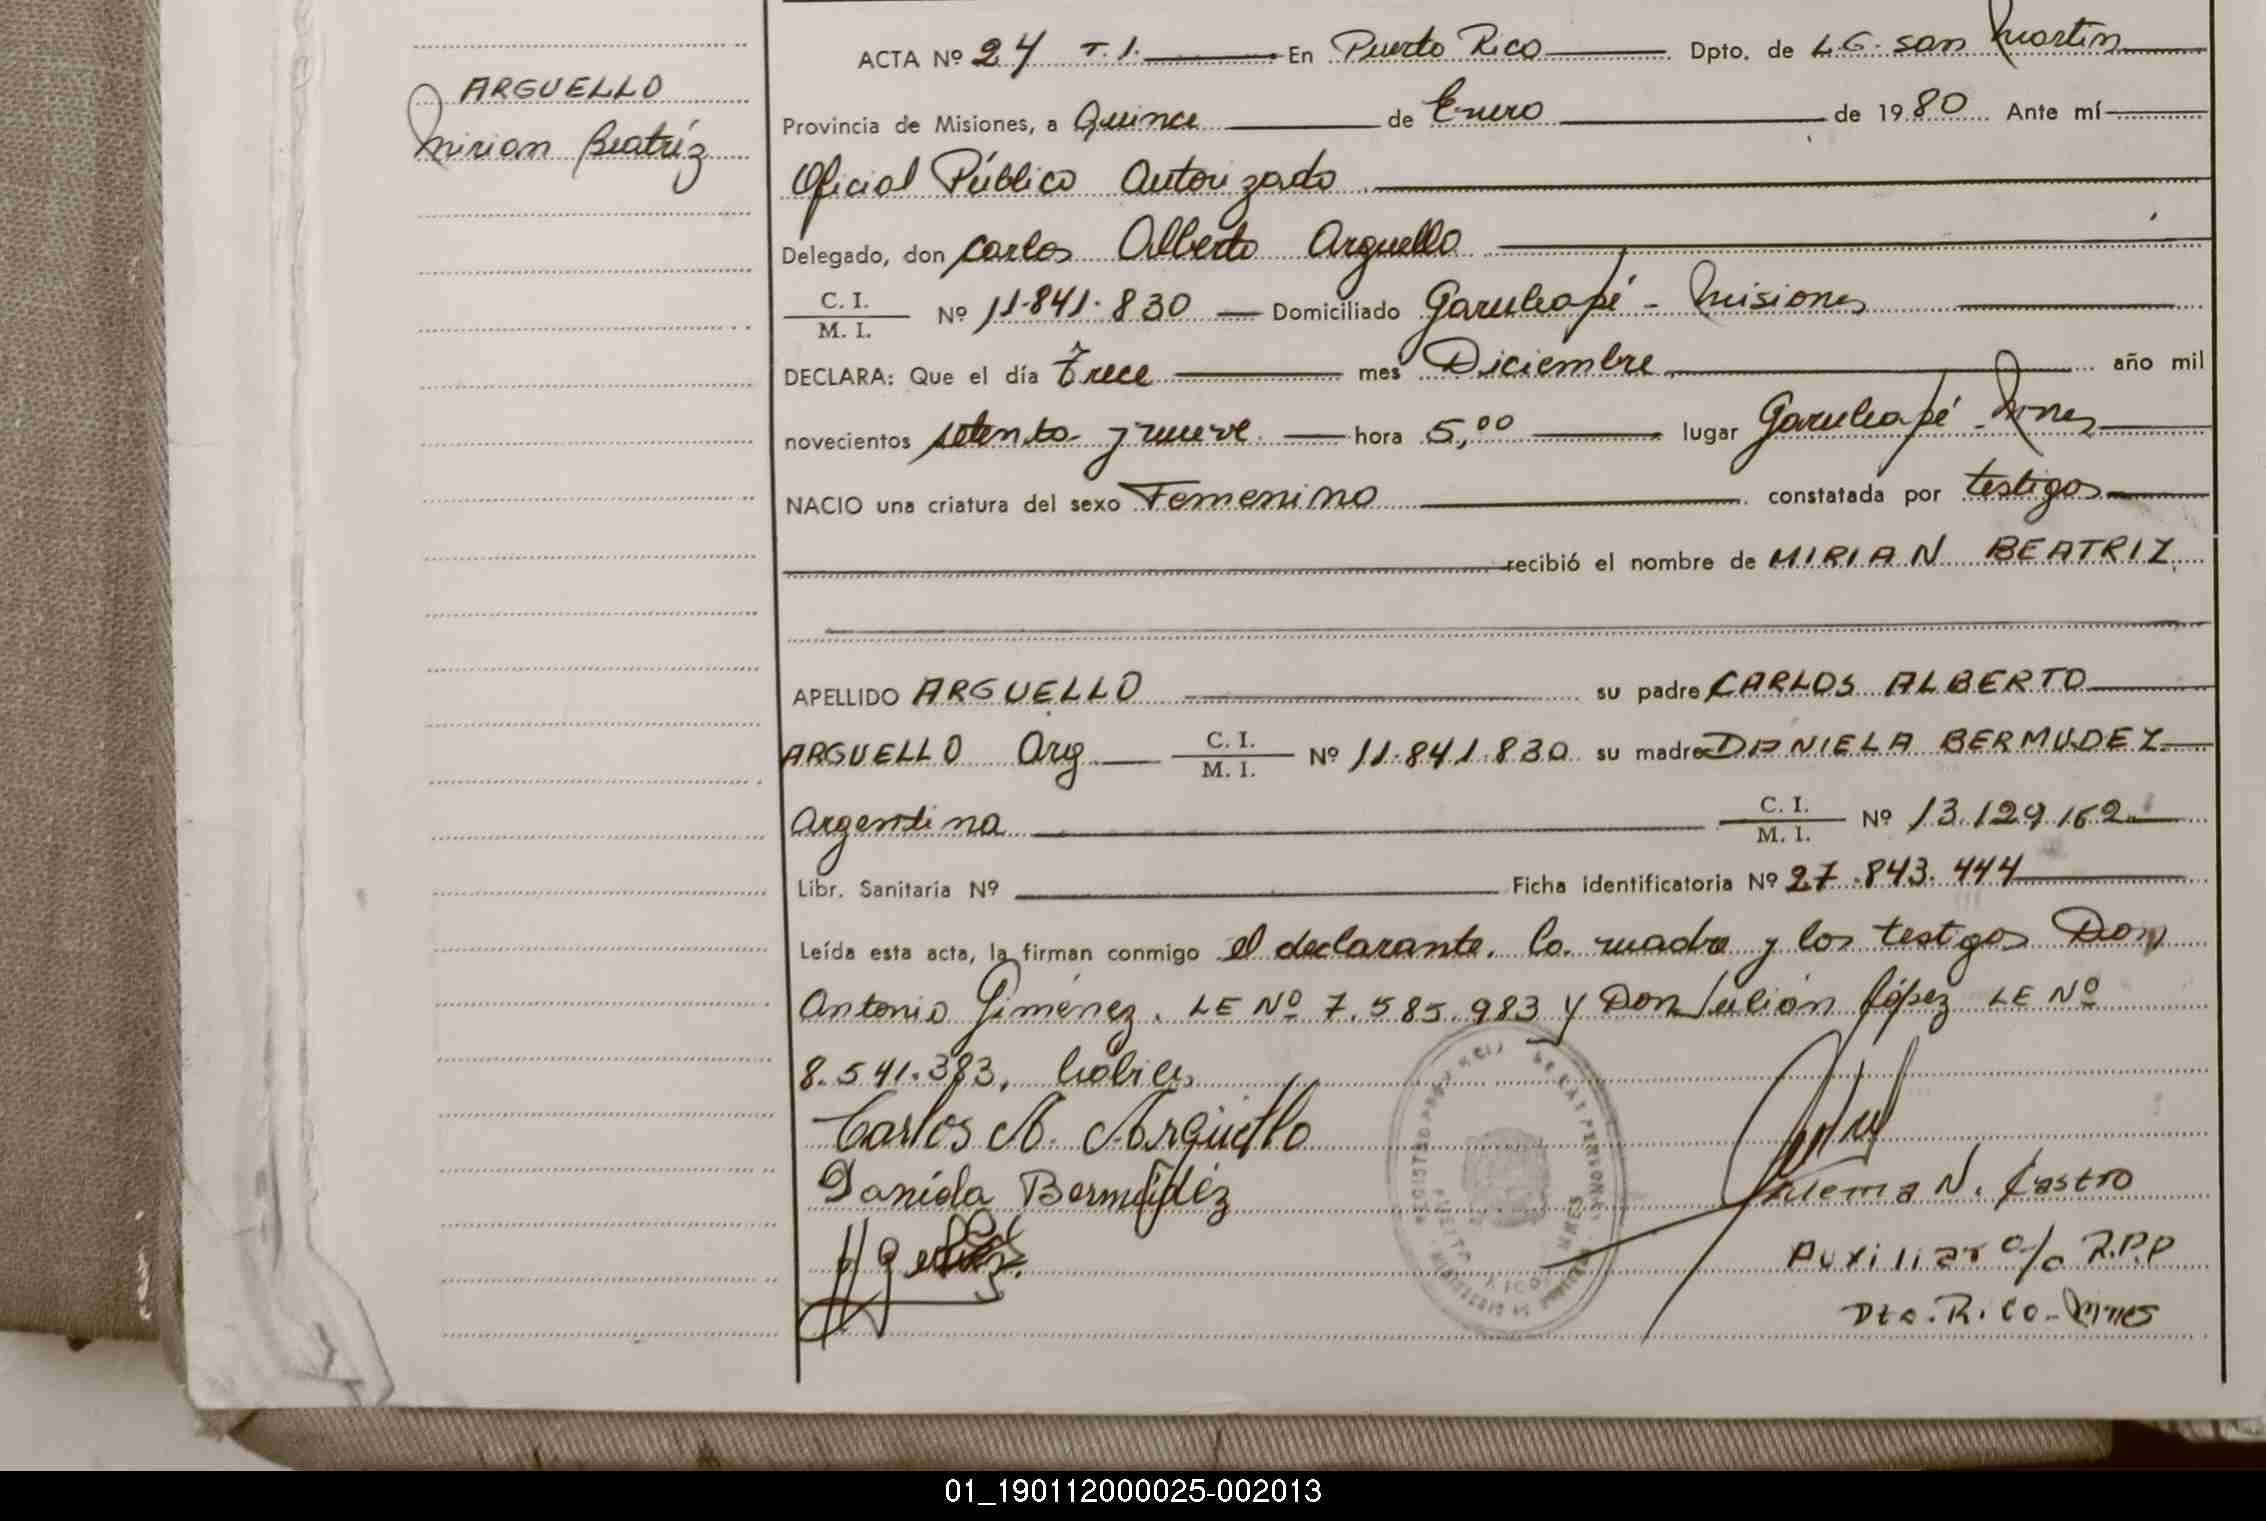 ARGUELLO
Mirian Beatríz
ACTA Nº 24 T.1. En Puerto Rico Dpto. de L.G. San Martin
Provincia de Misiones, a Quince de Enero de 1980 Ante mí
Oficial Público Autorizado
Delegado, don Carlos Alberto Arguello
C. I.
M. I.
Nº 11.841.830 Domiciliado Garuhapé - Misiones
DECLARA: Que el día trece mes Diciembre año mil
novecientos setenta y nueve hora 5,00 lugar Garuhapé - Mnes
NACIO una criatura del sexo Femenino constatada por testigos
recibió el nombre de MIRIAN BEATRIZ
APELLIDO ARGUELLO su padre CARLOS ALBERTO
ARGUELLO Arg C. I.
M. I.
Nº 11.841.830 su madre DANIELA BERMUDEZ
Argentina C. I.
M. I.
Nº 13.129.162
Libr. Sanitaria Nº Ficha identificatoria Nº 27.843.444
Leída esta acta, la firman conmigo el declarante, la madre y los testigos Don
Antonio Gimenez. LE Nº 7.585.983 y Don Julián López LE Nº
8.541.383, hábiles
Carlos A. Argüello
Daniela Bermúdez
N. Castro
Auxiliar a/c R.P.P
Pto. Rico - Mnes
01_190112000025-002013